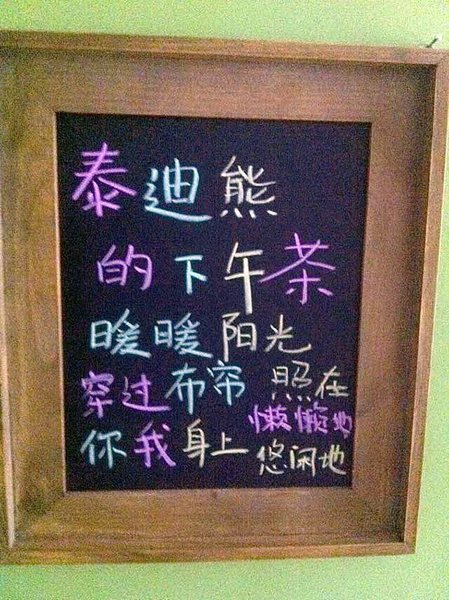 泰迪熊
的下午茶
暖暖阳光
穿过布帘 照在
你我身上 懒懒地
悠闲地